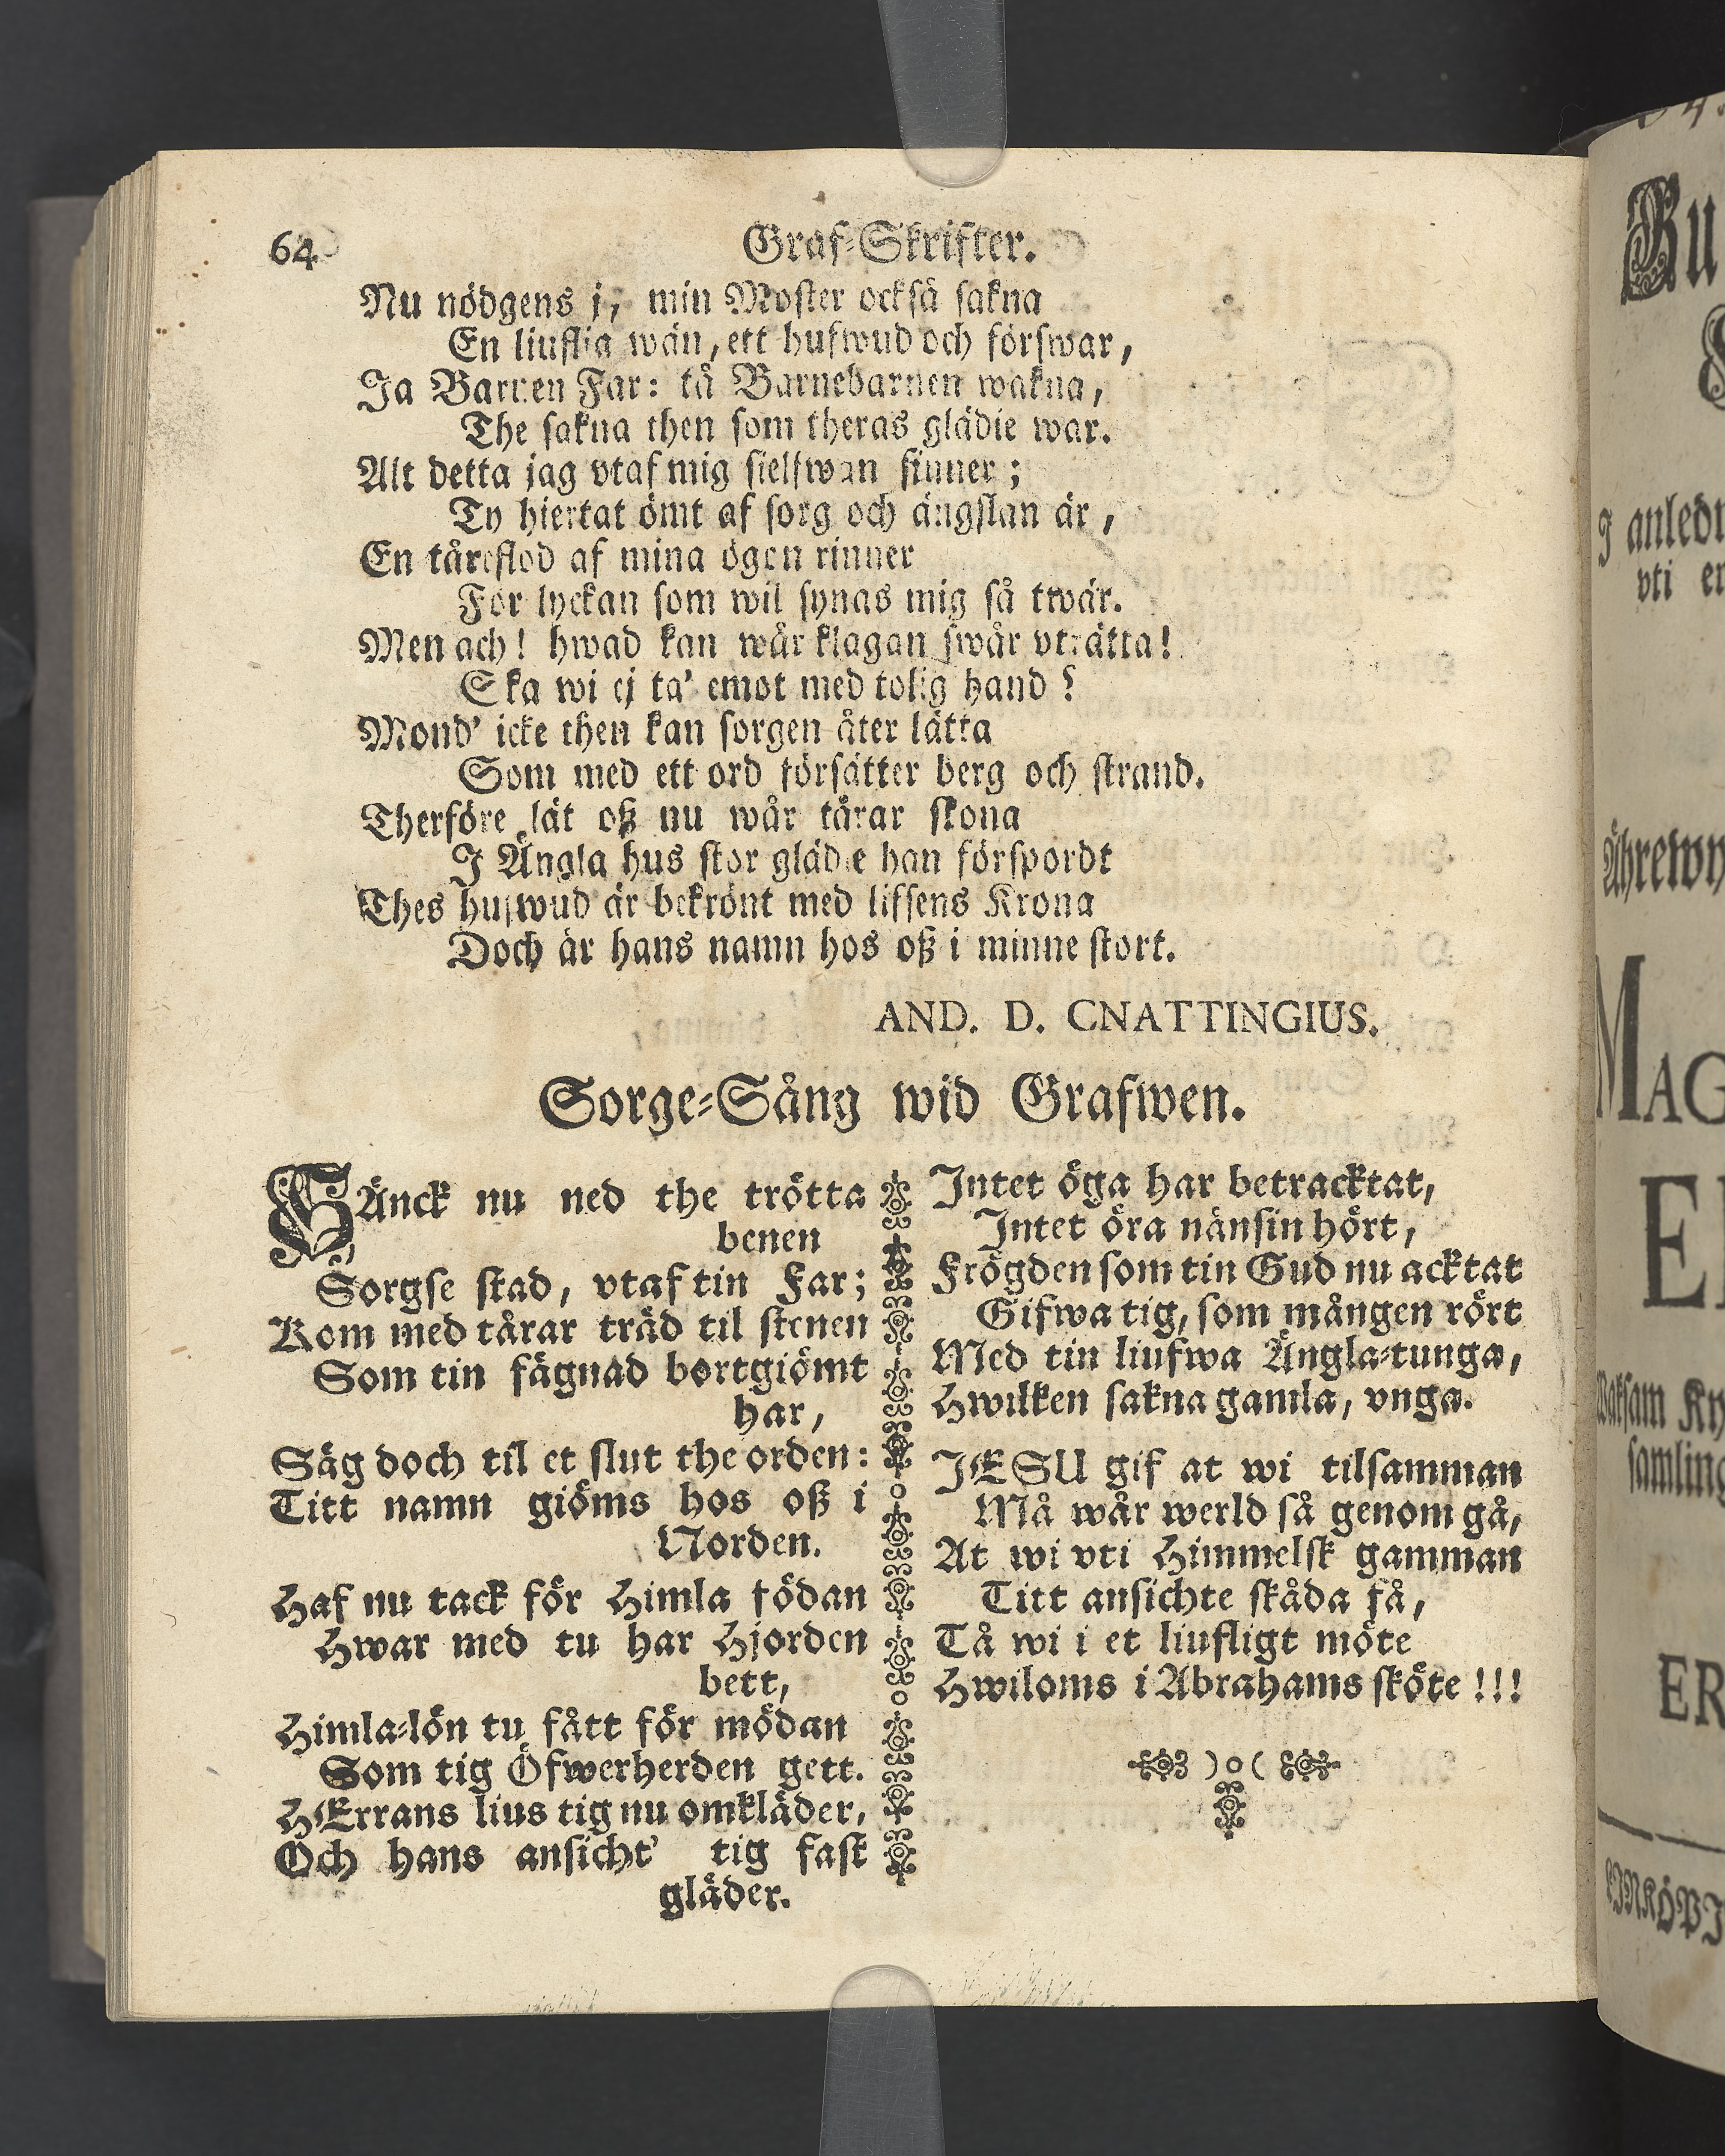 64
Graf-Skrifter.
Nu nödgens j, min Moster också sakna
En liuflig wän, ett hufwud och förswar,
Ja Barnen Far: tå Barnebarnen wakna,
The sakna then som theras glädie war.
Alt detta jag vtaf mig sielfwan finner;
Ty hiertat ömt af sorg och ängslan är,
En tåreflod af mina ögon rinner
För lyckan som wil synas mig så twär.
Men ach! hwad kan wår klagan swår vträtta!
Ska wi ej ta' emot med tolig hand?
Mond' icke then kan sorgen åter lätta
Som med ett ord försätter berg och strand.
Therföre lät oß nu wår tårar skona
I Ängla hus stor glädie han förspordt
Thes hufwud är bekrönt med lifsens Krona
Doch är hans namn hos oß i minne stort.
AND. D. CNATTINGIUS.
Sorge-Sång wid Grafwen.
SÄnck nu ned the trötta
benen
Sorgse stad, vtaf tin Far;
Kom med tårar träd til stenen
Som tin fägnad bortgiömt
har,
Säg doch til et slut the orden:
Titt namn giöms hos oß i
Norden.
Haf nu tack för Himla födan
Hwar med tu har Hjorden
bett,
Himla-lön tu fått för mödan
Som tig Öfwerherden gett.
HErrans lius tig nu omkläder,
Och hans ansicht' tig fast
gläder.
Intet öga har betracktat,
Intet öra nänsin hört,
Frögden som tin Gud nu acktat
Gifwa tig, som mången rört
Med tin liufwa Ängla-tunga,
Hwilken sakna gamla, vnga.
JESU gif at wi tilsamman
Må wår werld så genom gå,
At wi vti Himmelsk gamman
Titt ansichte skåda få,
Tå wi i et liufligt möte
Hwiloms i Abrahams sköte!!!
)o(
I anledn
vti en
MAG
ER